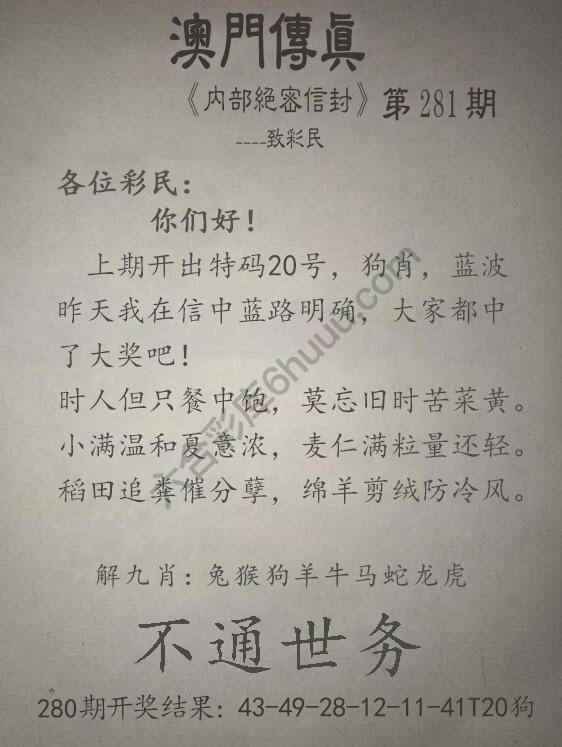 澳門傳眞
《内部絕密信封》第281期
----致彩民
各位彩民：
你们好！
上期开出特码20号，狗肖，蓝波
昨天我在信中蓝路明确，大家都中
了大奖吧！
时人但只餐中饱，莫忘旧时苦菜黄。
小满温和夏意浓，麦仁满粒量还轻。
稻田追粪催分孽，绵羊剪绒防冷风。
解九肖：兔猴狗羊牛马蛇龙虎
不通世务
280期开奖结果：43-49-28-12-11-41T20狗
六合彩库6huuu.com